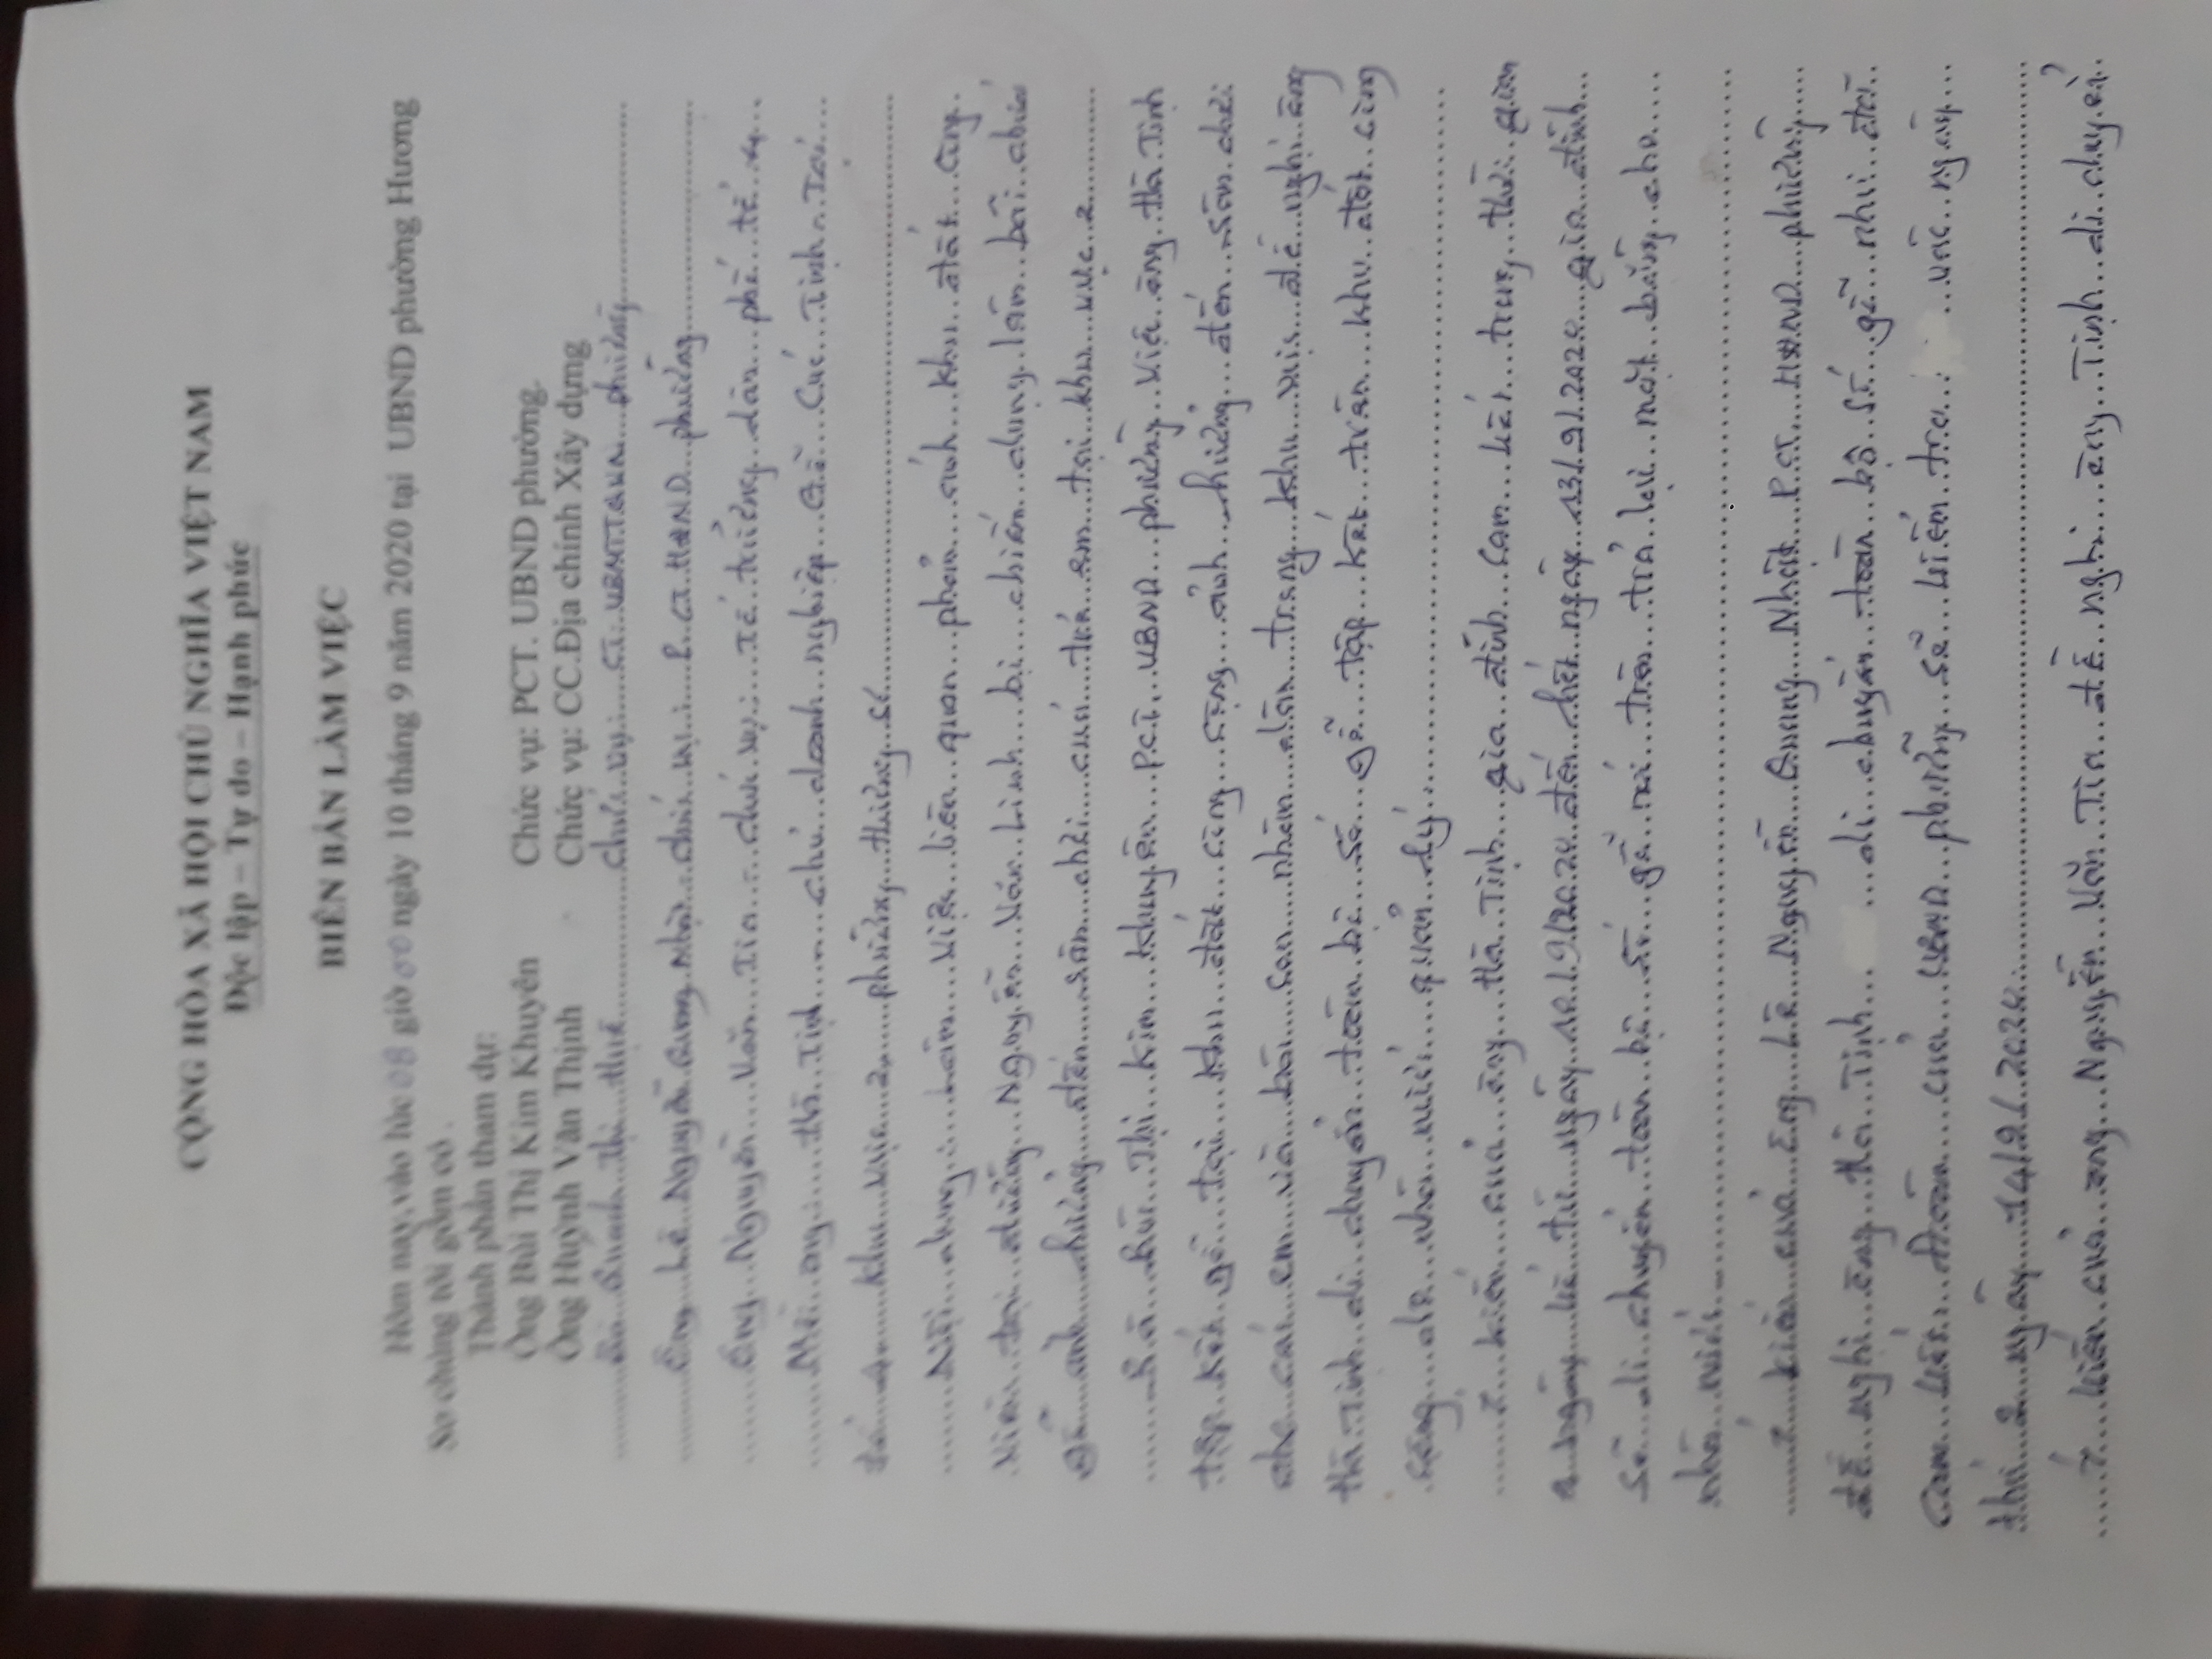 CỘNG HÒA XÃ HỘI CHỦ NGHĨA VIỆT NAM
Độc lập – Tự do – Hạnh phúc
BIÊN BẢN LÀM VIỆC
Hôm nay, vào lúc 08 giờ 00 ngày 10 tháng 9 năm 2020 tại UBND phường Hương
Sơ chúng tôi gồm có.
Thành phần tham dự:
Ông Bùi Thị Kim Khuyên Chức vụ: PCT. UBND phường.
Ông Huỳnh Văn Thịnh Chức vụ: CC.Địa chính Xây dựng
Bà thị Chức vụ: CT. UBMTTQVN phường
Ông Lê Nguyễn Quang Nhật chức vụ: P. CT HĐND phường
Ông Nguyễn Văn chức vụ: Tổ trưởng dân phố tổ 4
Mời ông: Hà Tịnh chủ doanh nghiệp Gỗ Tại
tổ 4 khu vực 2 phường
Nội dung: Làm Việc liên quan phản ánh khu đất Công
Viên tại đường Nguyễn Văn Linh bị chiếm dụng làm bãi chứa
gỗ ảnh hưởng đến sân chơi của trẻ em tại khu vực 2
Bà Bùi Thị Kim Khuyên P.CT UBND phường Việc ông Hà Tịnh
tập kết gỗ tại khu đất công cộng ảnh hưởng đến sân chơi
cho các em và nhân dân trong khu vực đề nghị ông
Hà Tịnh di chuyển toàn bộ số gỗ tập kết trên khu đất công
cộng do nhà nước quản lý
Ý kiến của ông Hà Tịnh gia đình Cam kết trong thời gian
ngày kể từ ngày 10/9/2020 đến hết ngày 13/9/2020 gia đình
sẽ di chuyển toàn bộ số gỗ nói trên trả lại mặt bằng cho
nhà nước
Ý kiến của Ông Lê Nguyễn Quang Nhật P.CT HĐND phường
đề nghị ông Hà Tịnh di chuyển toàn bộ số gỗ như đã
Cam kết. Đoàn của UBND phường sẽ kiểm tra vào ngày
thứ 2 ngày 14/9/2020.
Ý kiến của ông Nguyễn Văn đề nghị ông Tịnh di chuyển